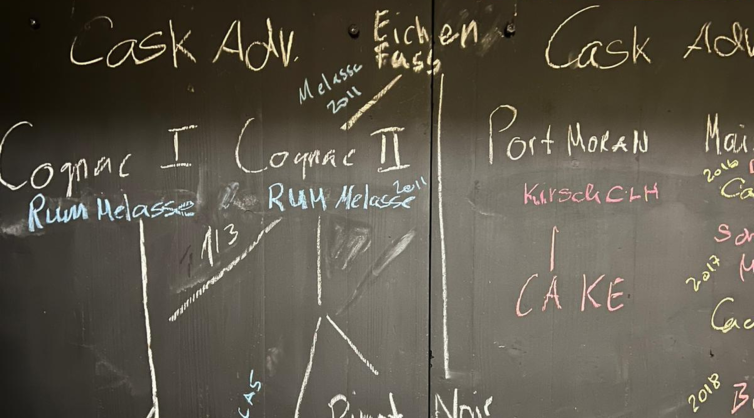 Cask Adv.
Eichen
Fass
Melasse
2011
Cognac I
Rum Melasse
Cognac II
RUM Melasse 2011
1/3
CAS
Pinot Noir
Cask Adv
Port MORAN
Kirsch CLH
CAKE
Mai
2016
Ca
2017
Cac
2018